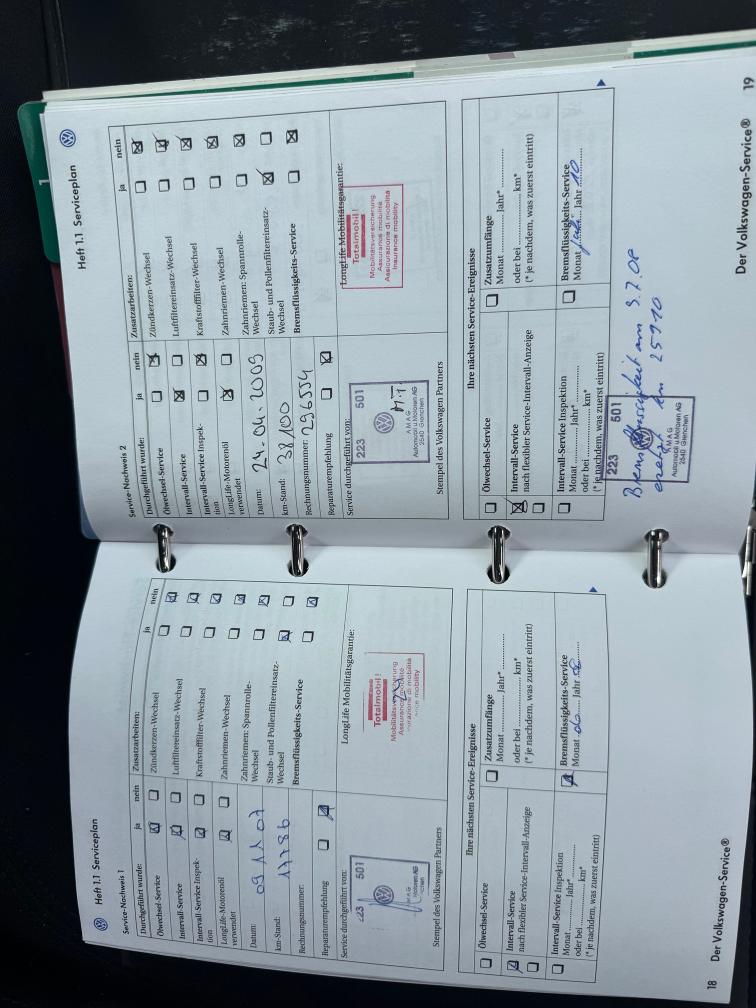 Heft 1.1 Serviceplan
Service-Nachweis 1
Durchgeführt wurde: ja nein
Ölwechsel-Service
Intervall-Service
Intervall-Service Inspek-
tion
LongLife-Motorenöl
verwendet
Datum: 09 11 07
km-Stand: 17786
Rechnungsnummer:
Reparaturempfehlung
Zusatzarbeiten: ja nein
Zündkerzen-Wechsel
Luftfiltereinsatz-Wechsel
Kraftstofffilter-Wechsel
Zahnriemen-Wechsel
Zahnriemen: Spannrolle-
Wechsel
Staub- und Pollenfiltereinsatz-
Wechsel
Bremsflüssigkeits-Service
Service durchgeführt von:
223 501
AMAG
Automobil u Motoren AG
Stempel des Volkswagen Partners
LongLife Mobilitätsgarantie:
Totalmobil!
Mobilitätsversicherung
Assurance mobilité
Assicurazione di mobilità
Insurance mobility
Ihre nächsten Service-Ereignisse
Ölwechsel-Service
Intervall-Service
nach flexibler Service-Intervall-Anzeige
Intervall-Service Inspektion
Monat ............ Jahr* ............
oder bei ............ km*
(* je nachdem, was zuerst eintritt)
Zusatzumfänge
Monat ............ Jahr* ............
oder bei ............ km*
(* je nachdem, was zuerst eintritt)
Bremsflüssigkeits-Service
Monat 06 Jahr 08
18 Der Volkswagen-Service®
Heft 1.1 Serviceplan
1
Service-Nachweis 2
Durchgeführt wurde: ja nein
Ölwechsel-Service
Intervall-Service
Intervall-Service Inspek-
tion
LongLife-Motorenöl
verwendet
Datum: 24.04.2009
km-Stand: 38100
Rechnungsnummer: 296554
Reparaturempfehlung
Zusatzarbeiten: ja nein
Zündkerzen-Wechsel
Luftfiltereinsatz-Wechsel
Kraftstofffilter-Wechsel
Zahnriemen-Wechsel
Zahnriemen: Spannrolle-
Wechsel
Staub- und Pollenfiltereinsatz-
Wechsel
Bremsflüssigkeits-Service
Service durchgeführt von:
223 501
AMAG
Automobil u Motoren AG
2540 Grenchen
Stempel des Volkswagen Partners
LongLife Mobilitätsgarantie:
Totalmobil!
Mobilitätsversicherung
Assurance mobilité
Assicurazione di mobilità
Insurance mobility
Ihre nächsten Service-Ereignisse
Ölwechsel-Service
Intervall-Service
nach flexibler Service-Intervall-Anzeige
Intervall-Service Inspektion
Monat ............ Jahr* ............
oder bei ............ km*
(* je nachdem, was zuerst eintritt)
Zusatzumfänge
Monat ............ Jahr* ............
oder bei ............ km*
(* je nachdem, was zuerst eintritt)
Bremsflüssigkeits-Service
Monat Juli Jahr 10
223 501
AMAG
Automobil u Motoren AG
2540 Grenchen
Bremsflüssigkeit am 9.7.08
km 25910
Der Volkswagen-Service® 19